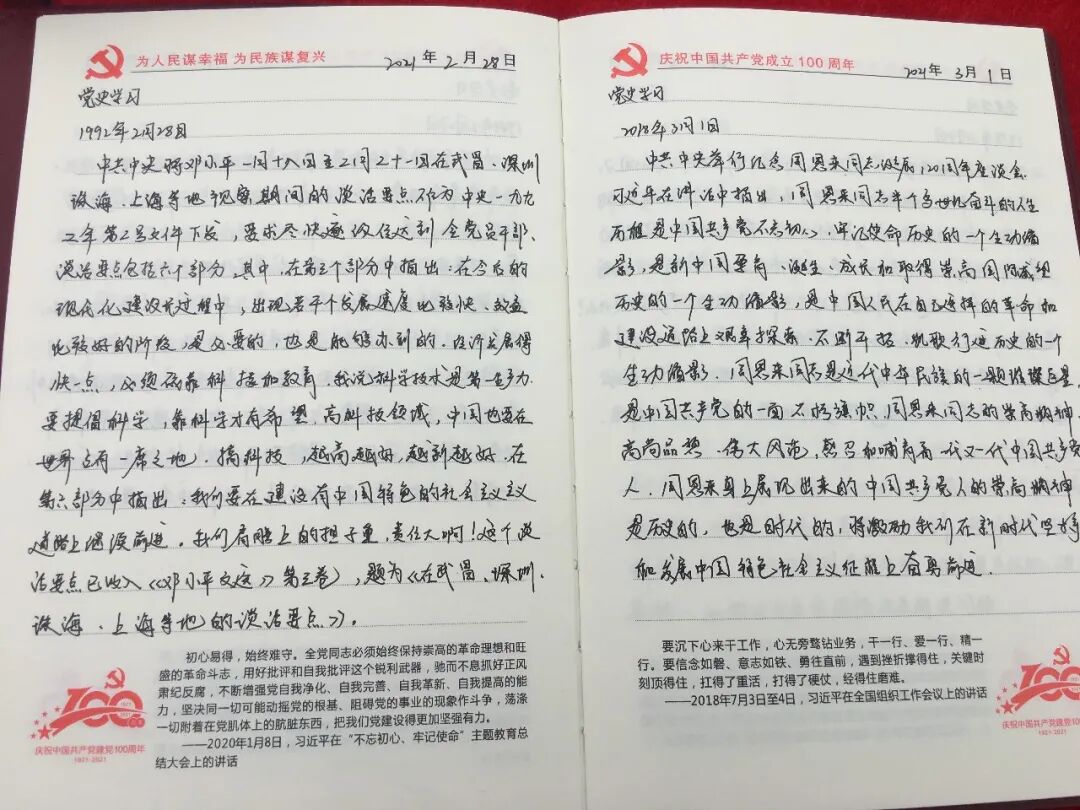 为人民谋幸福 为民族谋复兴
2021年2月28日
党史学习
1992年2月28日
中共中央将邓小平一月十八日至二月二十一日在武昌、深圳
珠海、上海等地视察期间的谈话要点作为中央一九九
二年第2号文件下发，要求尽快逐级传达到全党员干部、
谈话要点包括六个部分，其中，在第三个部分中指出：在今后的
现代化建设长过程中，出现若干个发展速度比较快、效益
比较好的阶段，是必要的，也是能够办到的。经济发展得
快一点，必须依靠科技和教育。我说科学技术是第一生产力
要提倡科学，靠科学才有希望。高科技领域，中国也要在
世界占有一席之地。搞科技，越高越好，越新越好。在
第六部分中指出：我们要在建设有中国特色的社会主义
道路上继续前进。我们肩膀上的担子重，责任大啊！这个谈
话要点已收入《邓小平文选》第三卷，题为《在武昌、深圳、
珠海、上海等地的谈话要点》。
初心易得，始终难守。全党同志必须始终保持崇高的革命理想和旺
盛的革命斗志，用好批评和自我批评这个锐利武器，驰而不息抓好正风
肃纪反腐，不断增强党自我净化、自我完善、自我革新、自我提高的能
力，坚决同一切可能动摇党的根基、阻碍党的事业的现象作斗争，荡涤
一切附着在党肌体上的肮脏东西，把我们党建设得更加坚强有力。
——2020年1月8日，习近平在“不忘初心、牢记使命”主题教育总
结大会上的讲话
100
1921
2021
庆祝中国共产党建党100周年
1921-2021
庆祝中国共产党成立100周年
2021年3月1日
党史学习
2018年3月1日
中共中央举行纪念周恩来同志诞辰120周年座谈会。
习近平在讲话中指出，周恩来同志半个多世纪奋斗的人生
历程是中国共产党不忘初心、牢记使命历史的一个生动缩
影，是新中国孕育、诞生、成长和取得崇高国际威望
历史的一个生动缩影，是中国人民在自己选择的革命和
建设道路上艰辛探索、不断开拓、凯歌行进历史的一个
生动缩影。周恩来同志是近代中华民族的一颗璀璨巨星，
是中国共产党的一面不朽旗帜。周恩来同志的崇高精神、
高尚品德、伟大风范，感召和哺育着一代又一代中国共产党
人。周恩来身上展现出来的中国共产党人的崇高精神
是历史的，也是时代的，将激励我们在新时代坚持
和发展中国特色社会主义征程上奋勇前进。
要沉下心来干工作，心无旁骛钻业务，干一行、爱一行、精一
行。要信念如磐、意志如铁、勇往直前，遇到挫折撑得住，关键时
刻顶得住，扛得了重活，打得了硬仗，经得住磨难。
——2018年7月3日至4日，习近平在全国组织工作会议上的讲话
100
庆祝中国共产党建党100周年
1921-2021